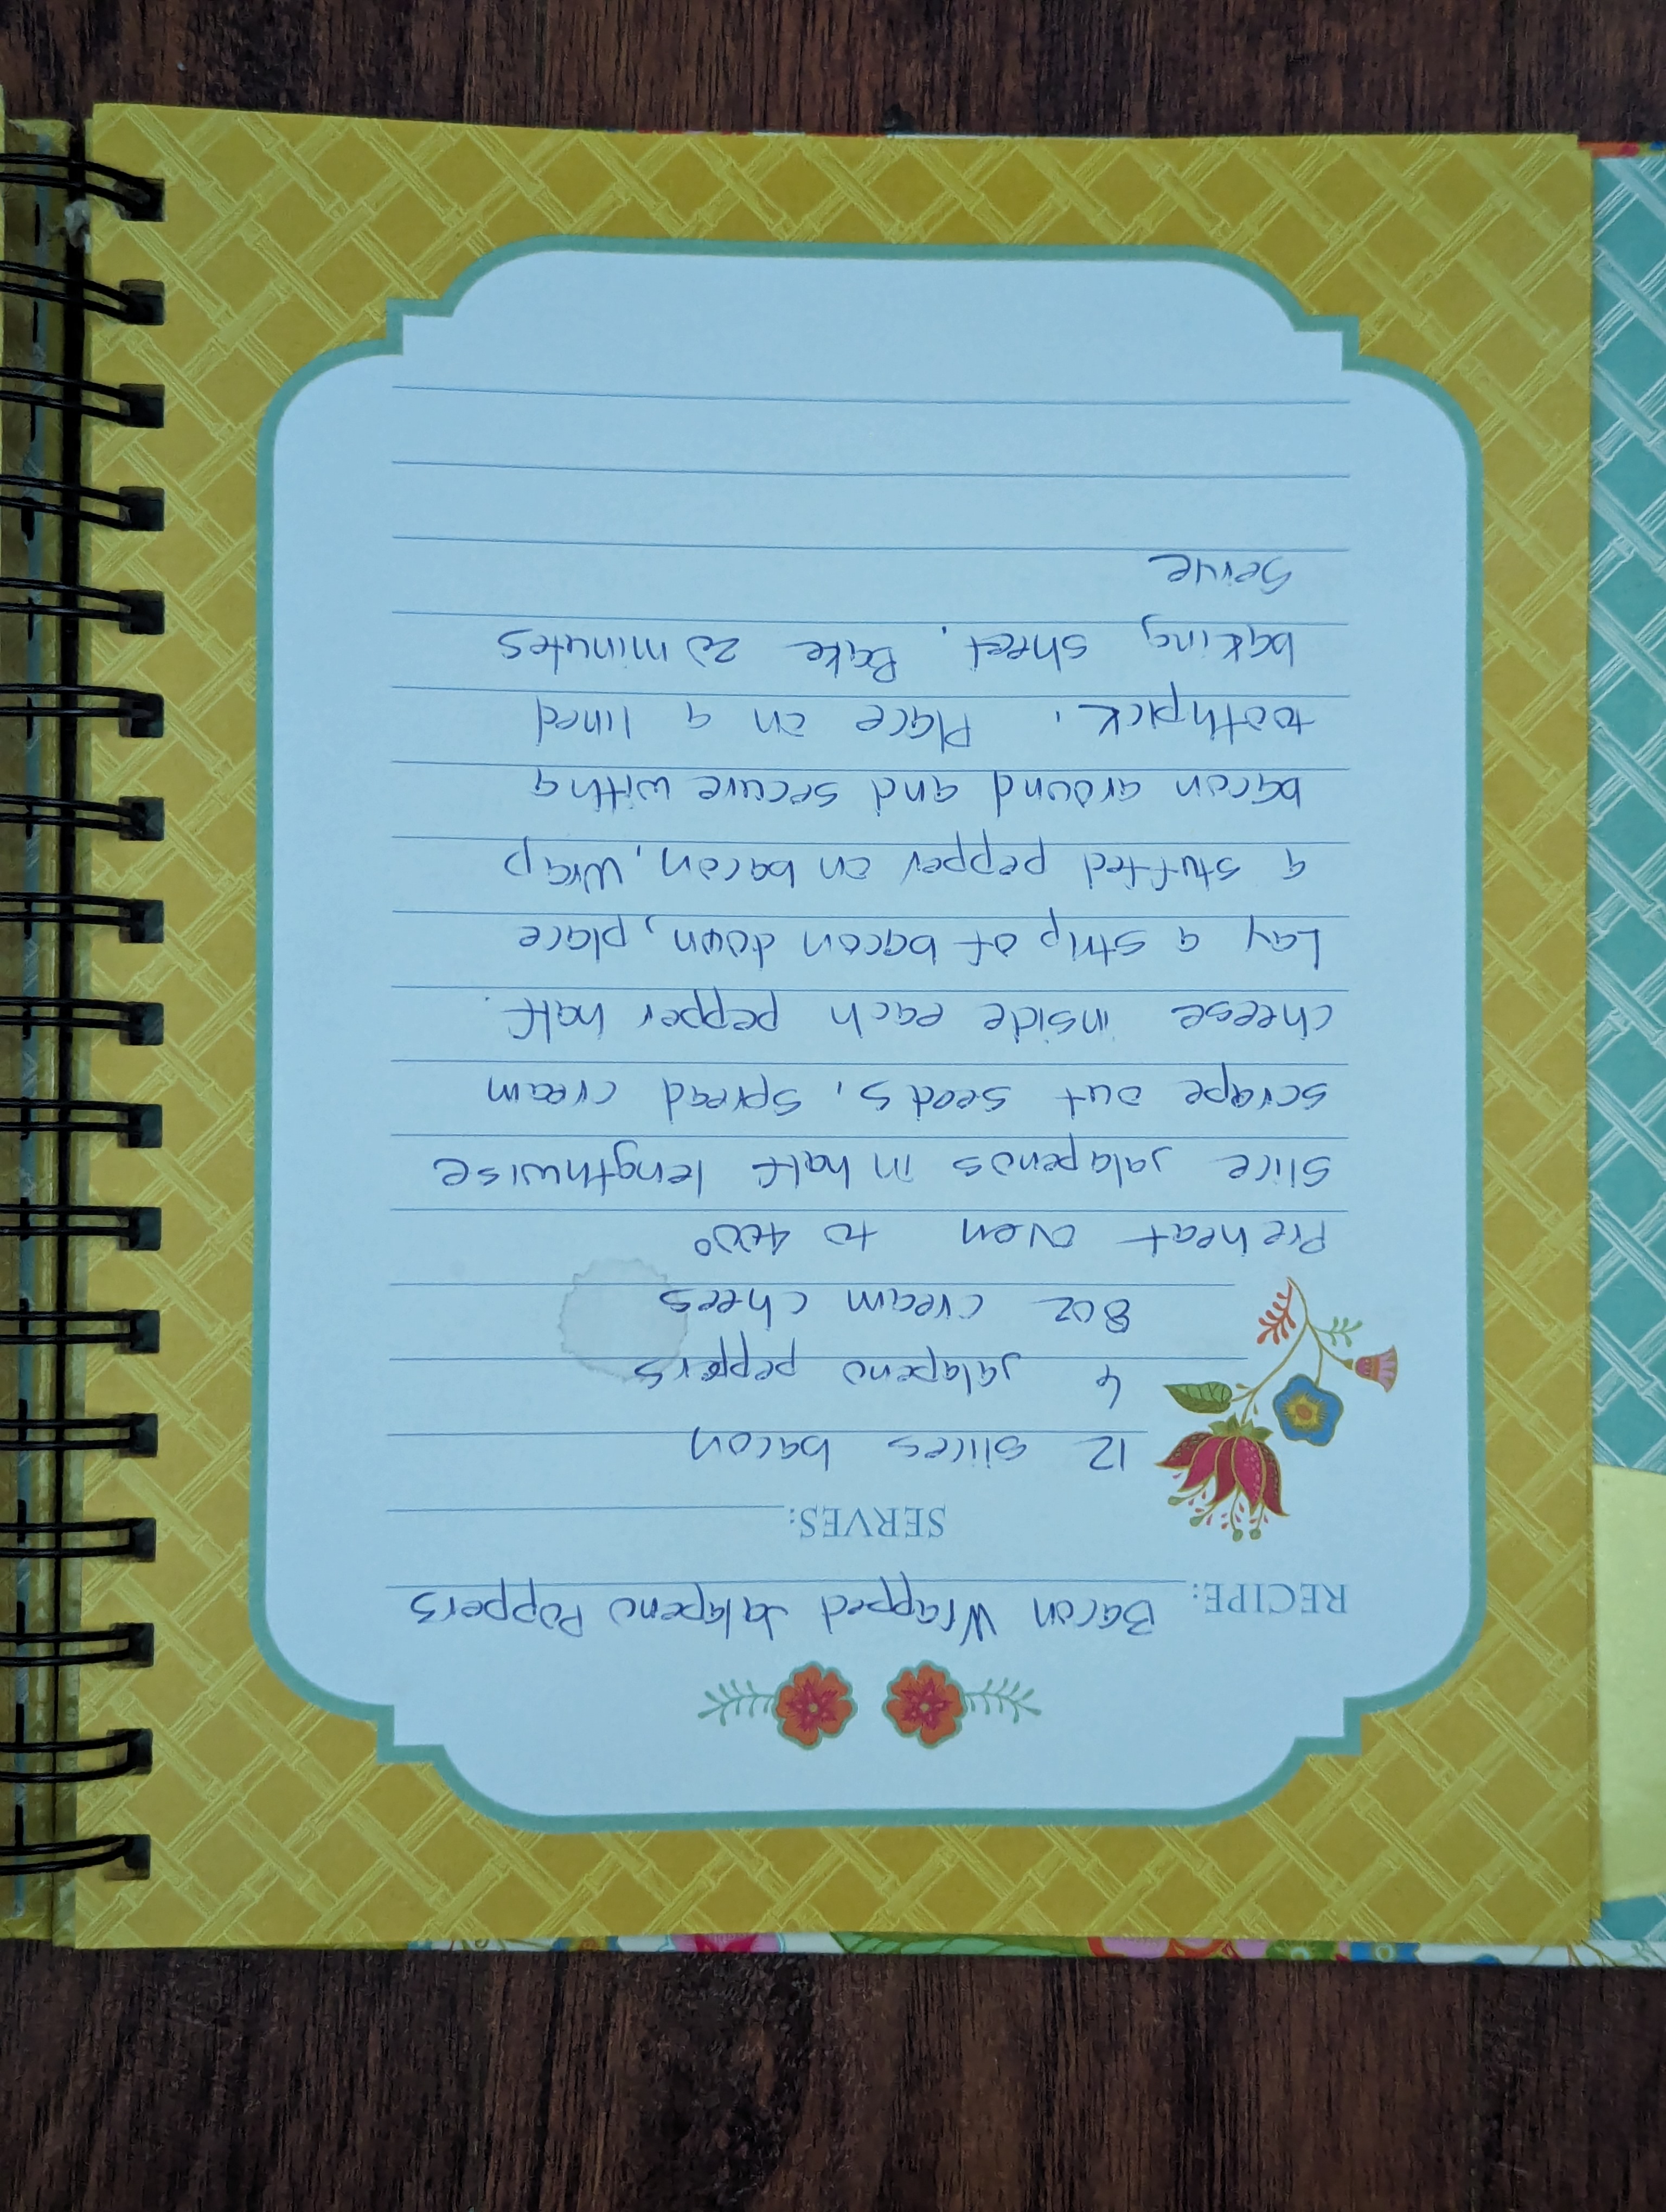 RECIPE: Bacon Wrapped Jalapeno Poppers
SERVES:
12 slices bacon
6 jalapeno peppers
8oz cream chees
Preheat oven to 400°
Slice jalapenos in half lengthwise
scrape out seeds, spread cream
cheese inside each pepper half.
Lay a strip of bacon down, place
a stuffed pepper on bacon, wrap
bacon around and secure with a
toothpick. Place on a lined
baking sheet. Bake 20 minutes
Serve